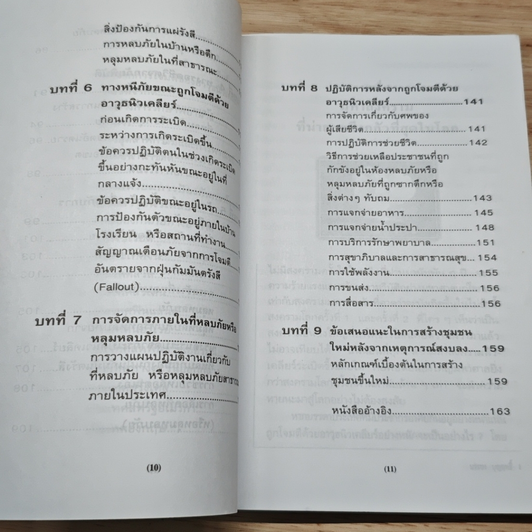 สิ่งป้องกันการแผ่รังสี
การหลบภัยในบ้านหรือตึก
หลุมหลบภัยในที่สาธารณะ
บทที่ 6 ทางหนีภัยขณะถูกโจมตีด้วย
อาวุธนิวเคลียร์
ก่อนเกิดการระเบิด
ระหว่างการเกิดระเบิดขึ้น
ข้อควรปฏิบัติตนในช่วงเกิดระเบิด
ขึ้นอย่างกะทันหันขณะอยู่ในที่
กลางแจ้ง
ข้อควรปฏิบัติขณะอยู่ในรถ
การป้องกันตัวขณะอยู่ภายในบ้าน
โรงเรียน หรือสถานที่ทำงาน
สัญญาณเตือนภัยจากการโจมตี
อันตรายจากฝุ่นกัมมันตรังสี
(Fallout)
บทที่ 7 การจัดการภายในที่หลบภัยหรือ
หลุมหลบภัย
การวางแผนปฏิบัติงานเกี่ยวกับ
ที่หลบภัย หรือหลุมหลบภัยสาธารณ
ภายในประเทศ
(10)
บทที่ 8 ปฏิบัติการหลังจากถูกโจมตีด้วย
อาวุธนิวเคลียร์ 141
การจัดการเกี่ยวกับศพของ
ผู้เสียชีวิต 141
การปฏิบัติการช่วยชีวิต 142
วิธีการช่วยเหลือประชาชนที่ถูก
กักขังอยู่ในห้องหลบภัยหรือ
หลุมหลบภัยที่ถูกซากตึกหรือ
สิ่งต่างๆ ทับถม 143
การแจกจ่ายอาหาร 145
การแจกจ่ายน้ำประปา 148
การบริการรักษาพยาบาล 151
การสุขาภิบาลและการสาธารณสุข 154
การใช้พลังงาน 155
การขนส่ง 156
การสื่อสาร 156
บทที่ 9 ข้อเสนอแนะในการสร้างชุมชน
ใหม่หลังจากเหตุการณ์สงบลง 159
หลักเกณฑ์เบื้องต้นในการสร้าง
ชุมชนขึ้นใหม่ 159
หนังสืออ้างอิง 163
(11)